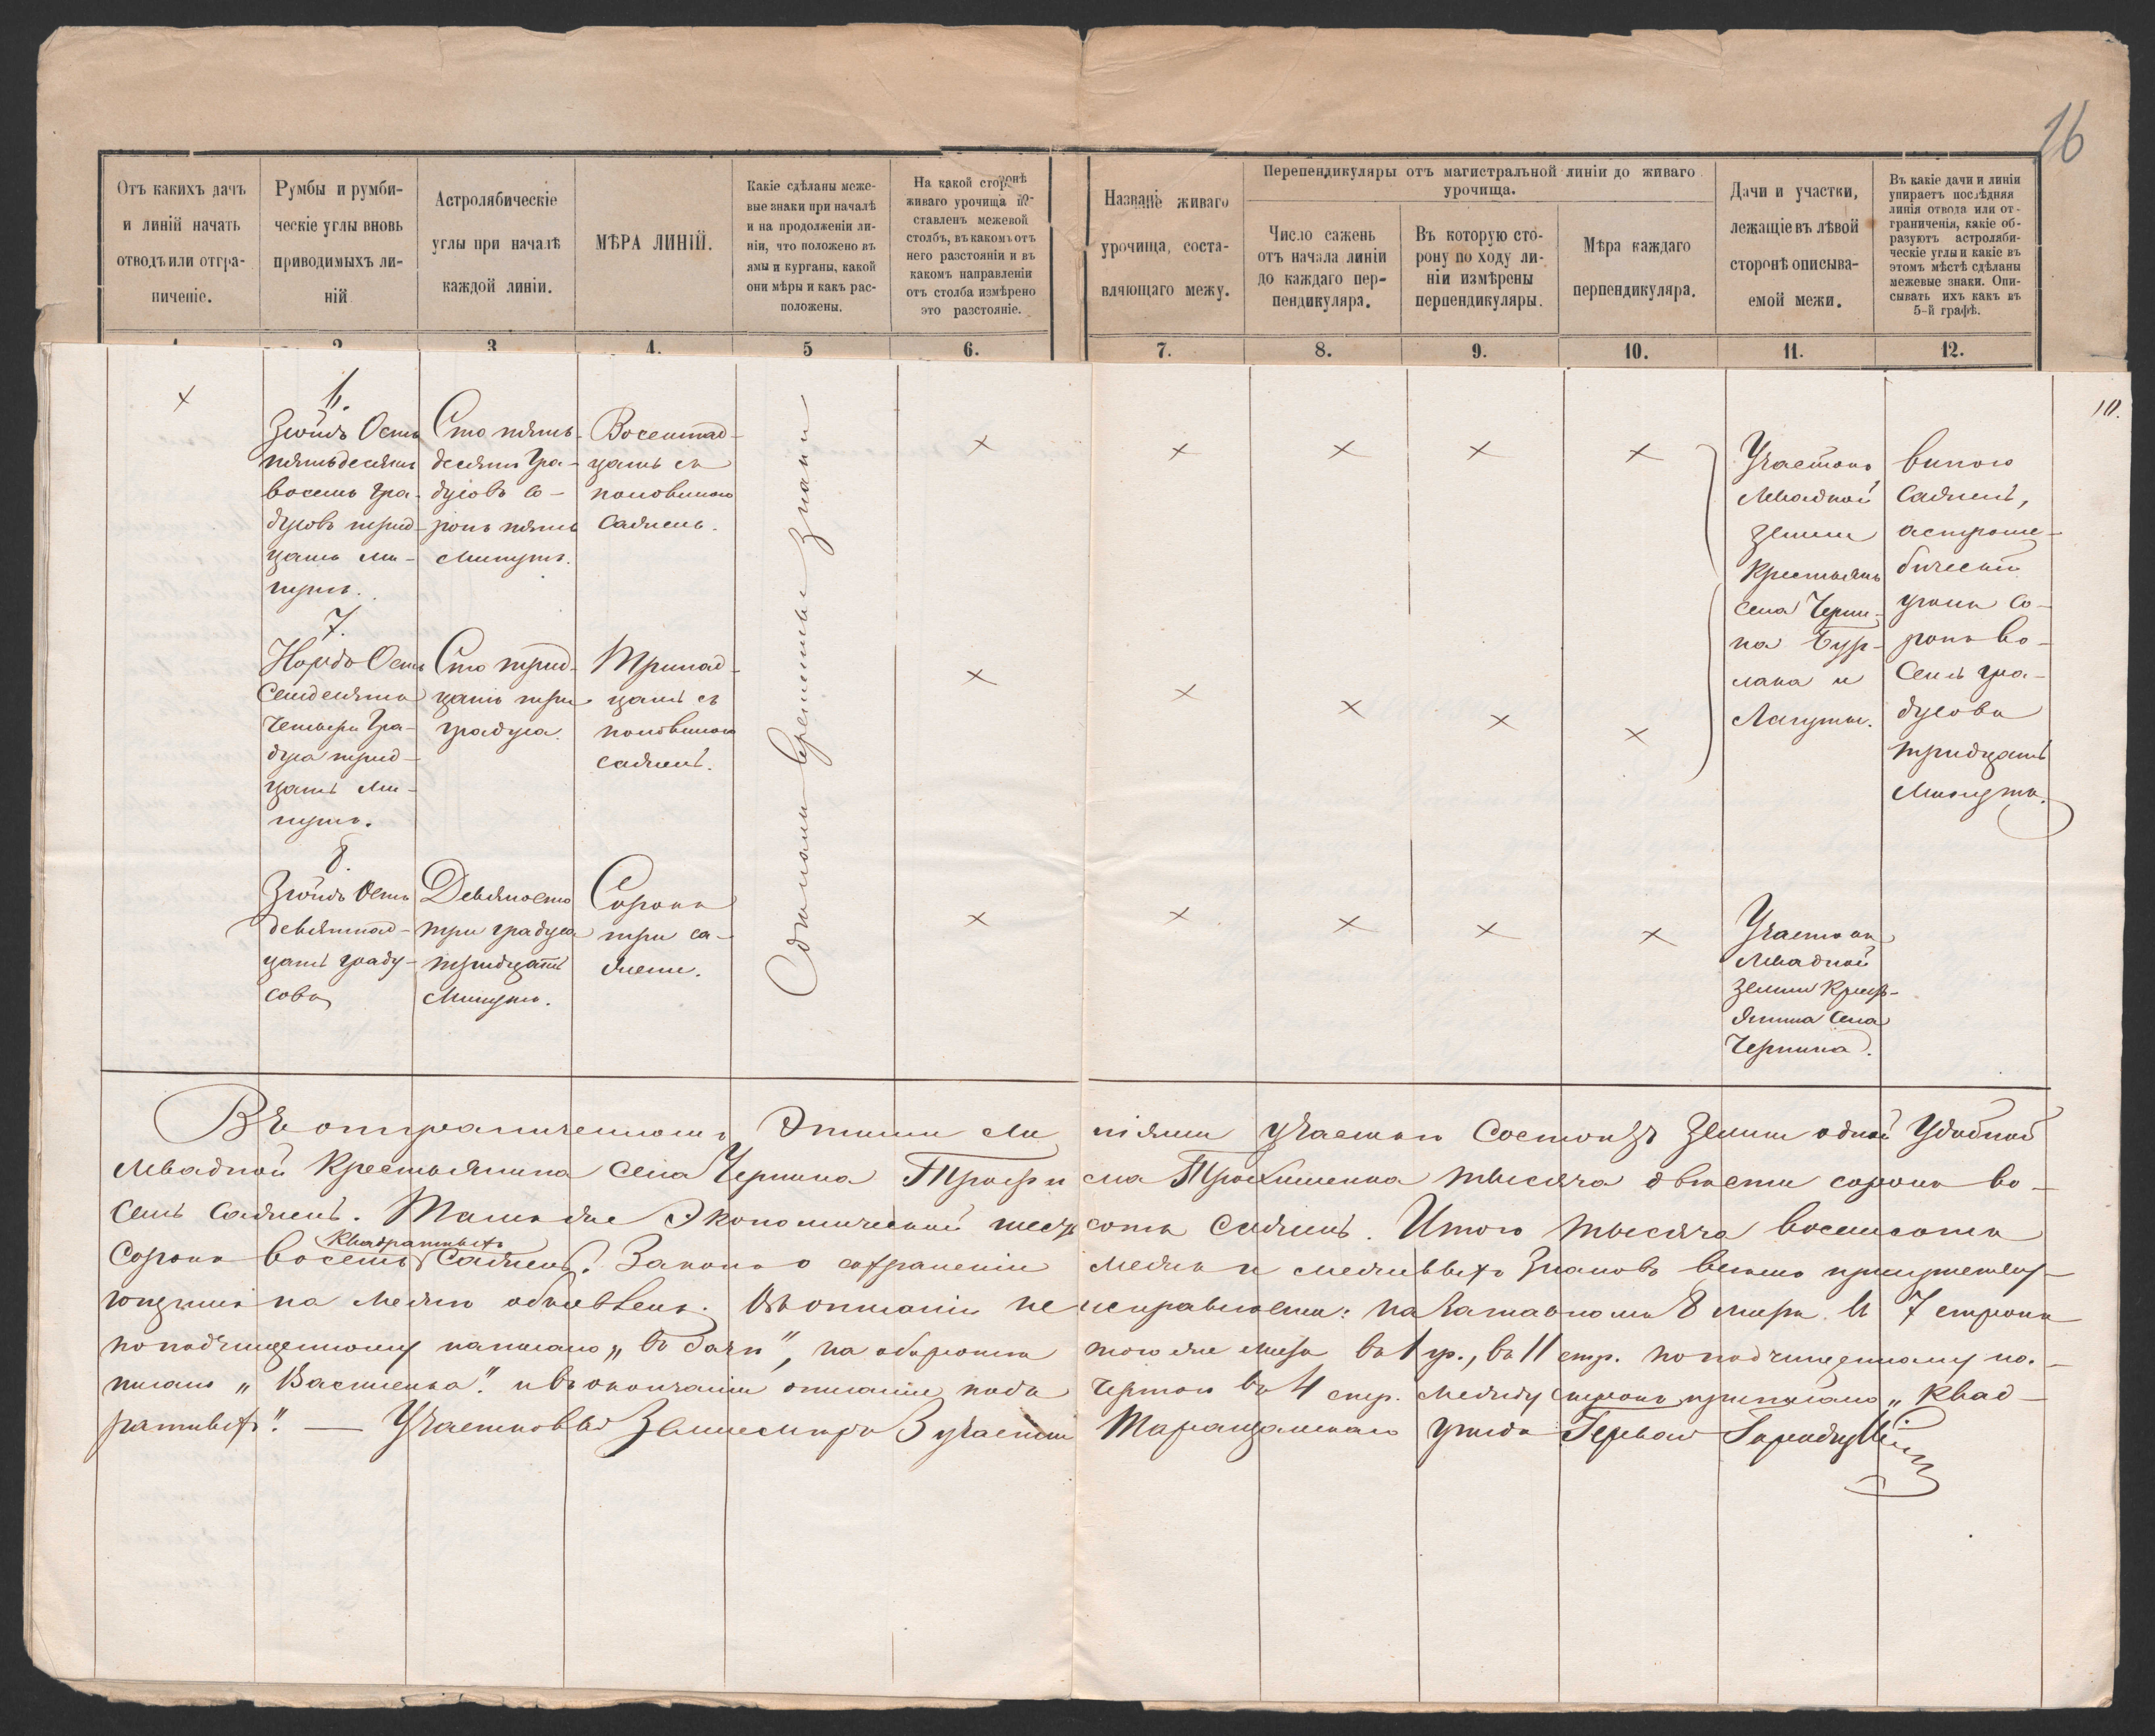 16
Отъ какихъ дачъ
и линій начать
отводъ или отгра-
ниченіе.
Румбы и румби-
ческіе углы вновь
приводимыхъ ли-
ній
Астролябическіе
углы при началѣ
каждой линіи.
МѢРА ЛИНІЙ.
Какіе сдѣланы меже-
вые знаки при началѣ
и на продолженіи ли-
ніи, что положено въ
ямы и курганы, какой
они мѣры и какъ рас-
положены.
На какой сторонѣ
живаго урочища по-
ставленъ межевой
столбъ, въ какомъ отъ
него разстояніи и въ
какомъ направленіи
отъ столба измѣрено
это разстояніе.
Названіе живаго
урочища, соста-
вляющаго межу.
Перепендикуляры отъ магистральной линіи до живаго
урочища.
Число сажень
отъ начала линіи
до каждаго пер-
пендикуляра.
Въ которую сто-
рону по ходу ли-
ніи измѣрены
перпендикуляры.
Мѣра каждаго
перпендикуляра.
Дачи и участки,
лежащіе въ лѣвой
сторонѣ описыва-
емой межи.
Въ какіе дачи и линіи
упираетъ послѣдняя
линія отвода или от-
граниченія, какіе об-
разуютъ астроляби-
ческіе углы и какіе въ
этомъ мѣстѣ сдѣланы
межевые знаки. Опи-
сывать ихъ какъ въ
5-й графѣ.
1 2 3 4. 5 6. 7. 8. 9. 10. 11. 12.
10.
×
6.
Зюйдъ Остъ
пятьдесятъ
восемь гра-
дусовъ трид-
цать ми-
нутъ.
Сто пять-
десятъ гра-
дусовъ со-
рокъ пять
минутъ.
Восемнад-
цать съ
половиною
сажень.
Сдѣланы временные знаки
× × × × ×
Участокъ
левадной
земли
крестьянъ
села Черни-
на Бур-
лака и
Лагуты.
виною
сажень,
астроля-
бическій
уголъ со-
рокъ во-
семь гра-
дусовъ
тридцать
минутъ.
7.
Нордъ Остъ
семдесятъ
четыре гра-
дуса трид-
цать ми-
нутъ.
Сто трид-
цать три
градуса.
Тринад-
цать съ
половиною
сажень.
× × × × ×
8.
Зюйдъ Остъ
девятнад-
цать граду-
совъ
Девяносто
три градуса
тридцать
минутъ.
Сорокъ
три са-
жени.
× × × × ×
Участокъ
левадной
земли крест-
янина села
Чернина.
Въ отграниченномъ этими линіями участкѣ состоитъ земли одной удобной
левадной крестьянина села Чернина Трофима тысяча двѣсти сорокъ во-
семь сажень. Такъ же экономической шестьсотъ сажень. Итого тысяча восемьсотъ
сорокъ восемь квадратныхъ сажень. Законъ о сохраненіи межъ и межевыхъ знаковъ всѣмъ присутству-
ющимъ на межѣ объявленъ. Въ описаніи неисправности: на 8 листѣ въ 7 строкѣ
по подчищенному написано „ въ дачи ", на оборотѣ того же листа въ 1 гр., въ 11 стр. по подчищенному на-
писано „ Василенка " и въ окончаніи описанія подъ чертою въ 4 стр. между строкъ приписано „ квад-
ратныхъ ". — Участковый Землемѣръ 3 участка Таращанскаго уѣзда